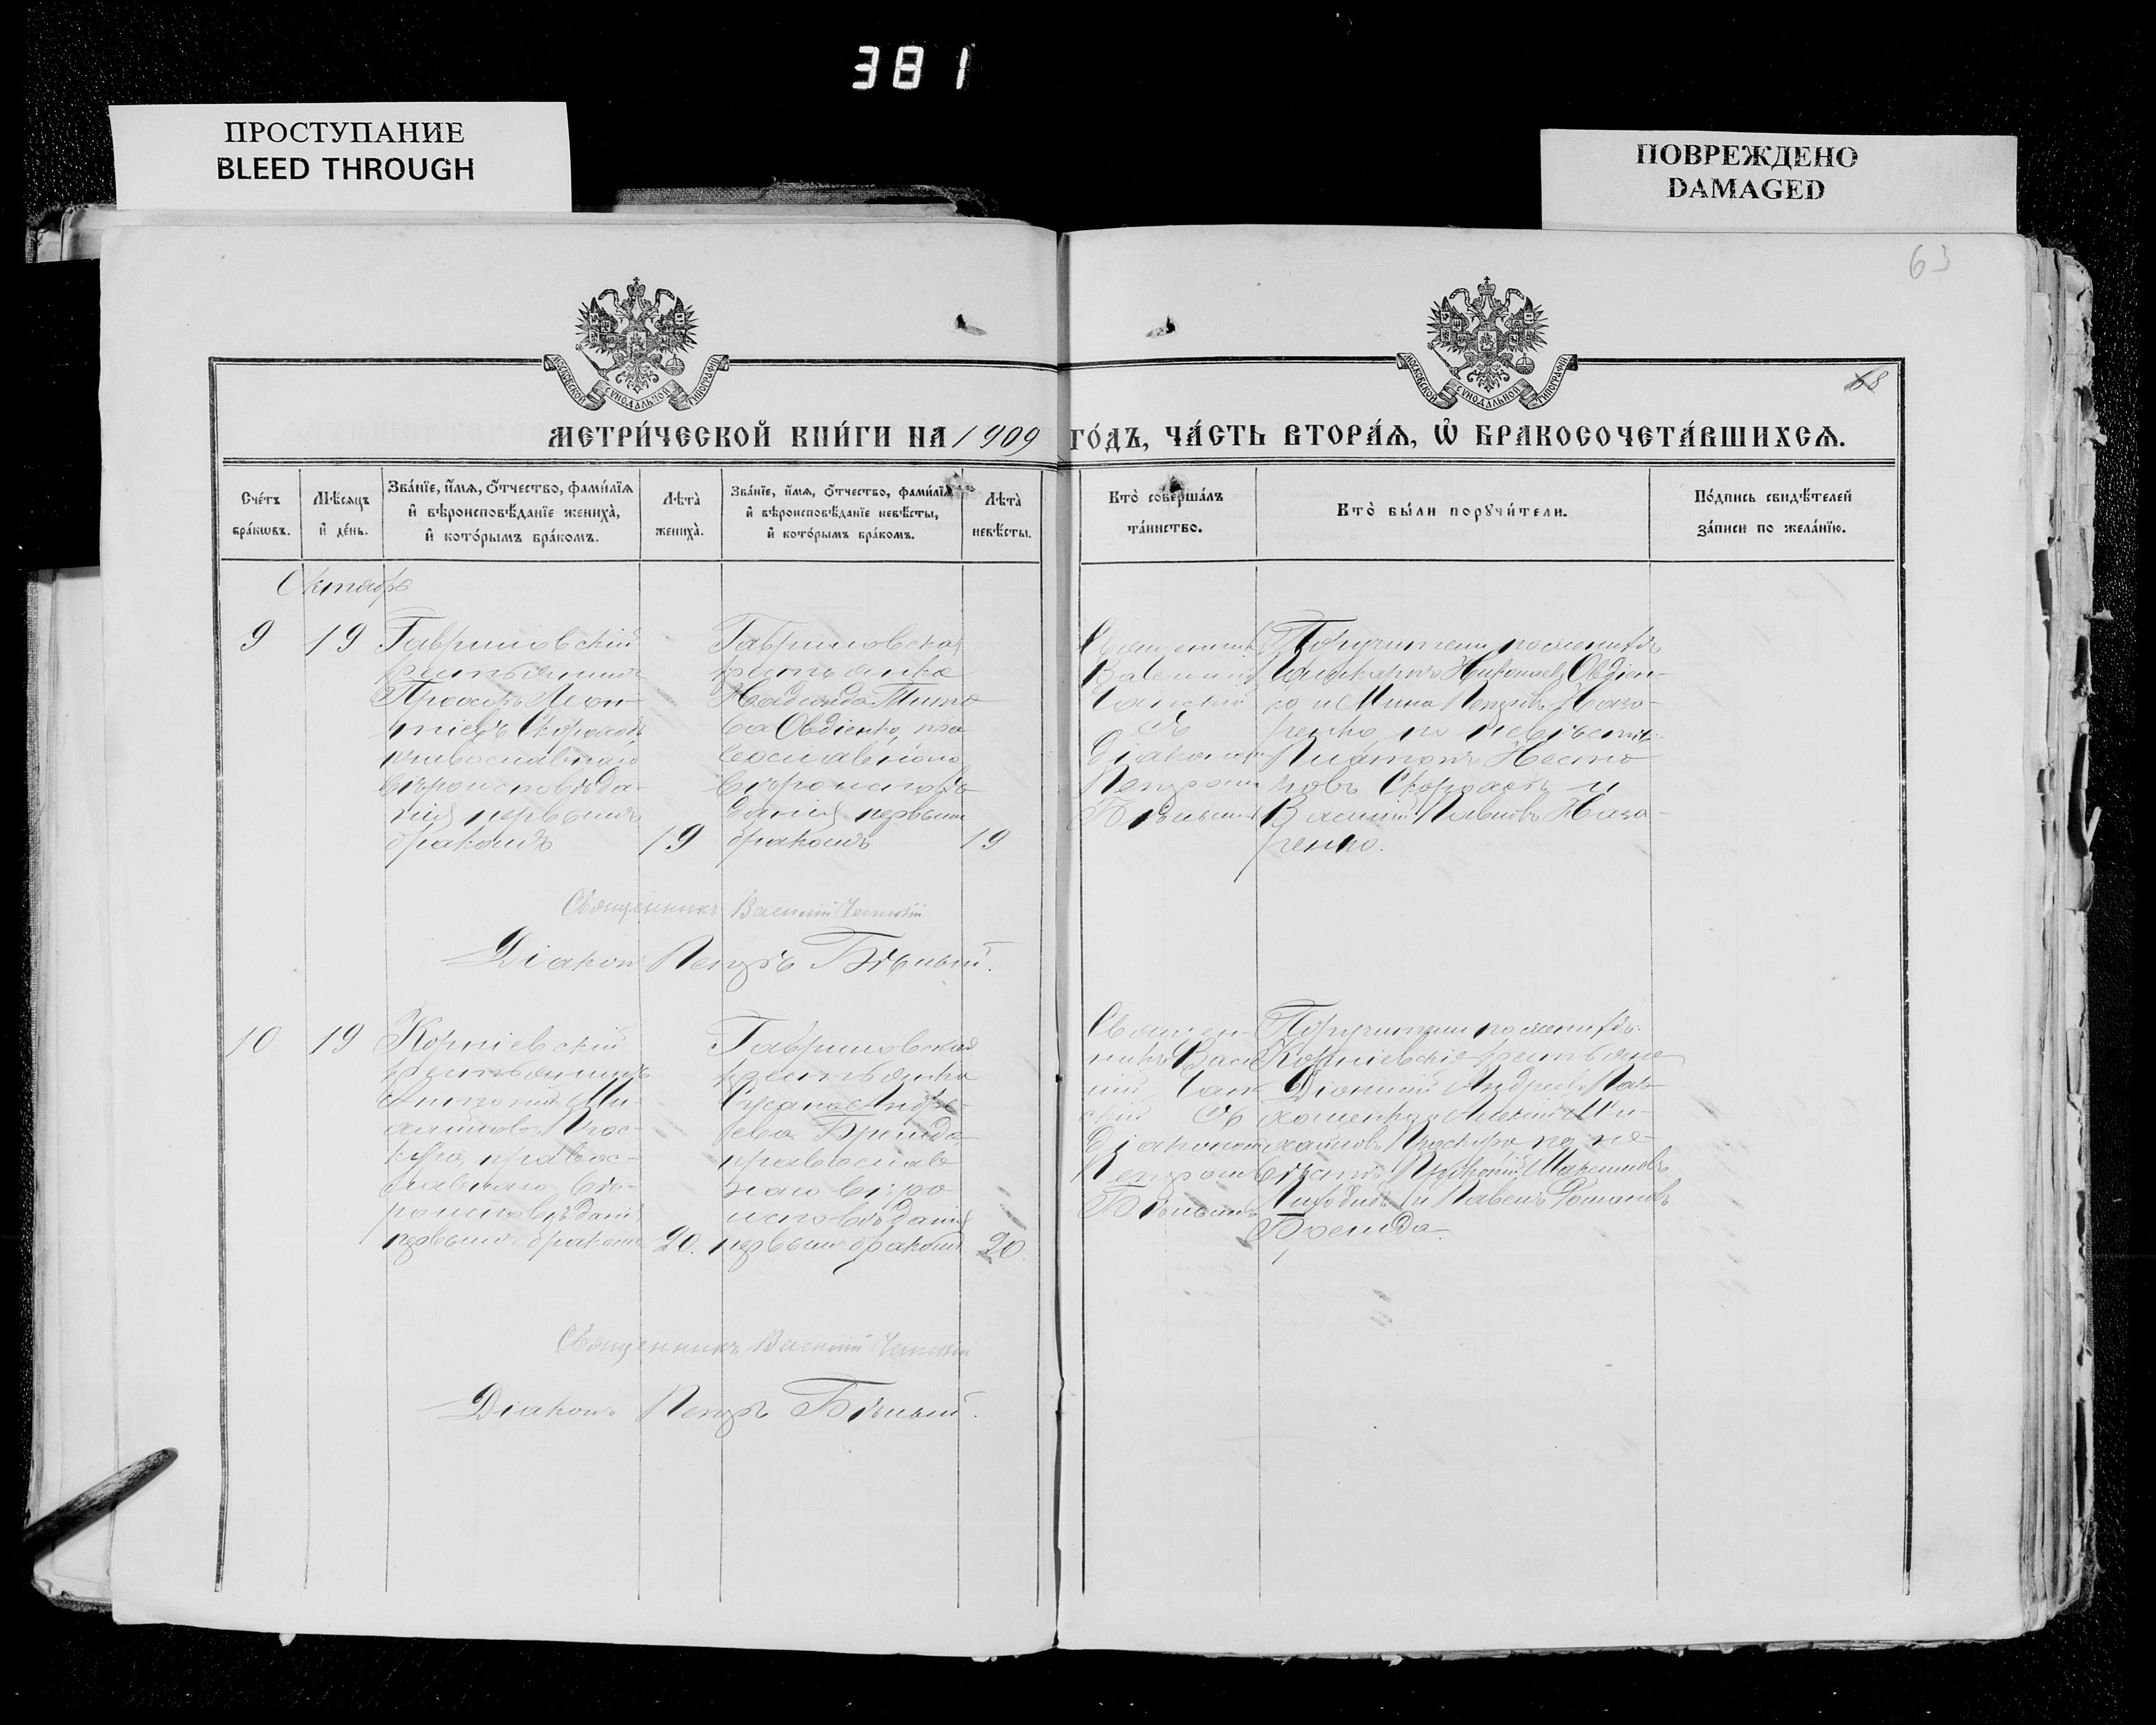 381
ПРОСТУПАНИЕ
BLEED THROUGH
ПОВРЕЖДЕНО
DAMAGED
63
68
МОСКОВСКОЙ СѴНОДАЛЬНОЙ ТИПОГРАФІИ
МОСКОВСКОЙ СѴНОДАЛЬНОЙ ТИПОГРАФІИ
МЕТРИ́ЧЕСКОЙ КНИ́ГИ НА 1909 ГО́ДЪ, ЧА́СТЬ ВТОРА́Ѧ, Ѽ БРАКОСОЧЕТА́ВШИХСѦ.
Сче́тъ бра́кѡвъ.
Мѣ́сѧцъ и҆ де́нь.
Зва́нїе, и҆́мѧ, ѻ҆́тчество, фами́лїѧ и҆ вѣроисповѣ́данїе жениха̀, и҆ кото́рымъ бра́комъ.
Лѣта̀ жениха̀.
Зва́нїе, и҆́мѧ, ѻ҆́тчество, фами́лїѧ и҆ вѣроисповѣ́данїе невѣ́сты, и҆ кото́рымъ бра́комъ.
Лѣта̀ невѣ́сты.
Кто̀ соверша́лъ та́инство.
Кто̀ бы́ли порꙋчи́тели.
По́дпись свидѣ́телей за́писи по жела́нїю.
Октябрь
9
19
Гавриловскій
крестьянинъ
Прохоръ Леон-
тіевъ Скороходъ
православнаго
вѣроисповѣда-
нія первымъ
бракомъ
19
Гавриловская
крестьянка
Надежда Тито
ва Овдіенко, пра
вославнаго
вѣроисповѣ
данія первым
бракомъ
19
Священникъ
Василій
Чайскій
съ
діакономъ
Петромъ
Бѣлымъ
Поручители по женихѣ
Николаев Овдіен-
ко и Мина Петровъ Наза-
ренко, по невѣстѣ:
Платонъ Несто
ровъ Скороходъ и
Василій Павловъ Наза-
ренко.
Священникъ Василій Чайскій
Діаконъ Петръ Бѣлый.
10
19
Корніевскій
крестьянинъ
Антоній Ми-
хайловъ Прос-
куро, правос-
лавнаго вѣ-
роисповѣданія
первымъ бракомъ
20.
Гавриловская
крестьянка
Сусанна Андре-
ева Бреида
православ
наго вѣро
исповѣданія
первымъ бракомъ
20.
Священ-
никъ Васи
лій Чай
скій съ
діакономъ
Петромъ
Бѣлымъ
Поручители по женихѣ:
Корніевскіе крестьяне
Діонисій Андреев Пав-
и Алексій Ми-
хайловъ Проскуро по не-
вѣстѣ: Максимовъ
и Павелъ Романовъ
Бреида.
Священникъ Василій Чайскій
Діаконъ Петръ Бѣлый.